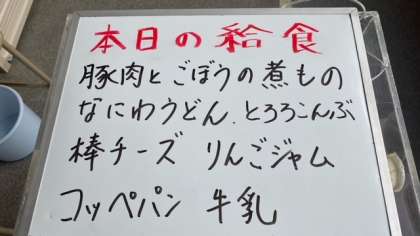 本日の給食
豚肉とごぼうの煮もの
なにわうどん、とろろこんぶ
棒チーズ りんごジャム
コッペパン 牛乳